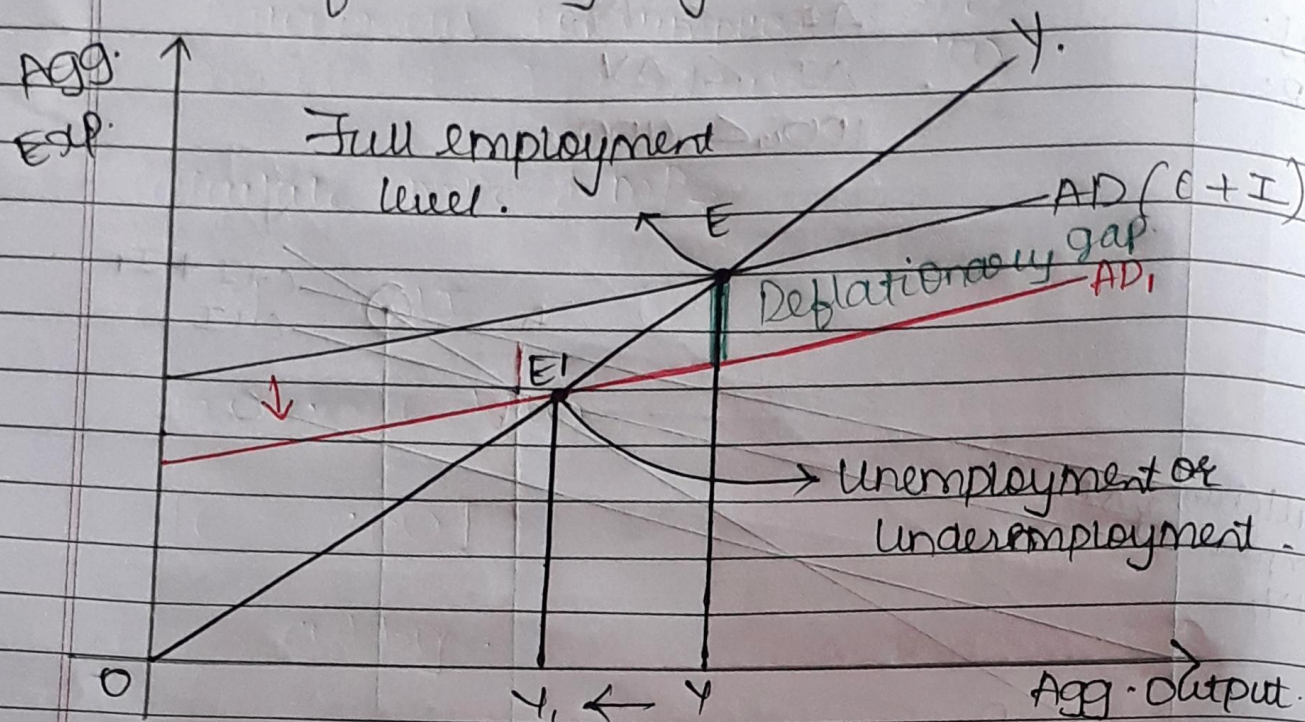 Agg.
Exp.
Y.
Full employment
level.
E
AD (C + I)
Deflationary gap.
AD1
E1
Unemployment or
Underemployment.
O
Y1 ← Y
Agg. Output.